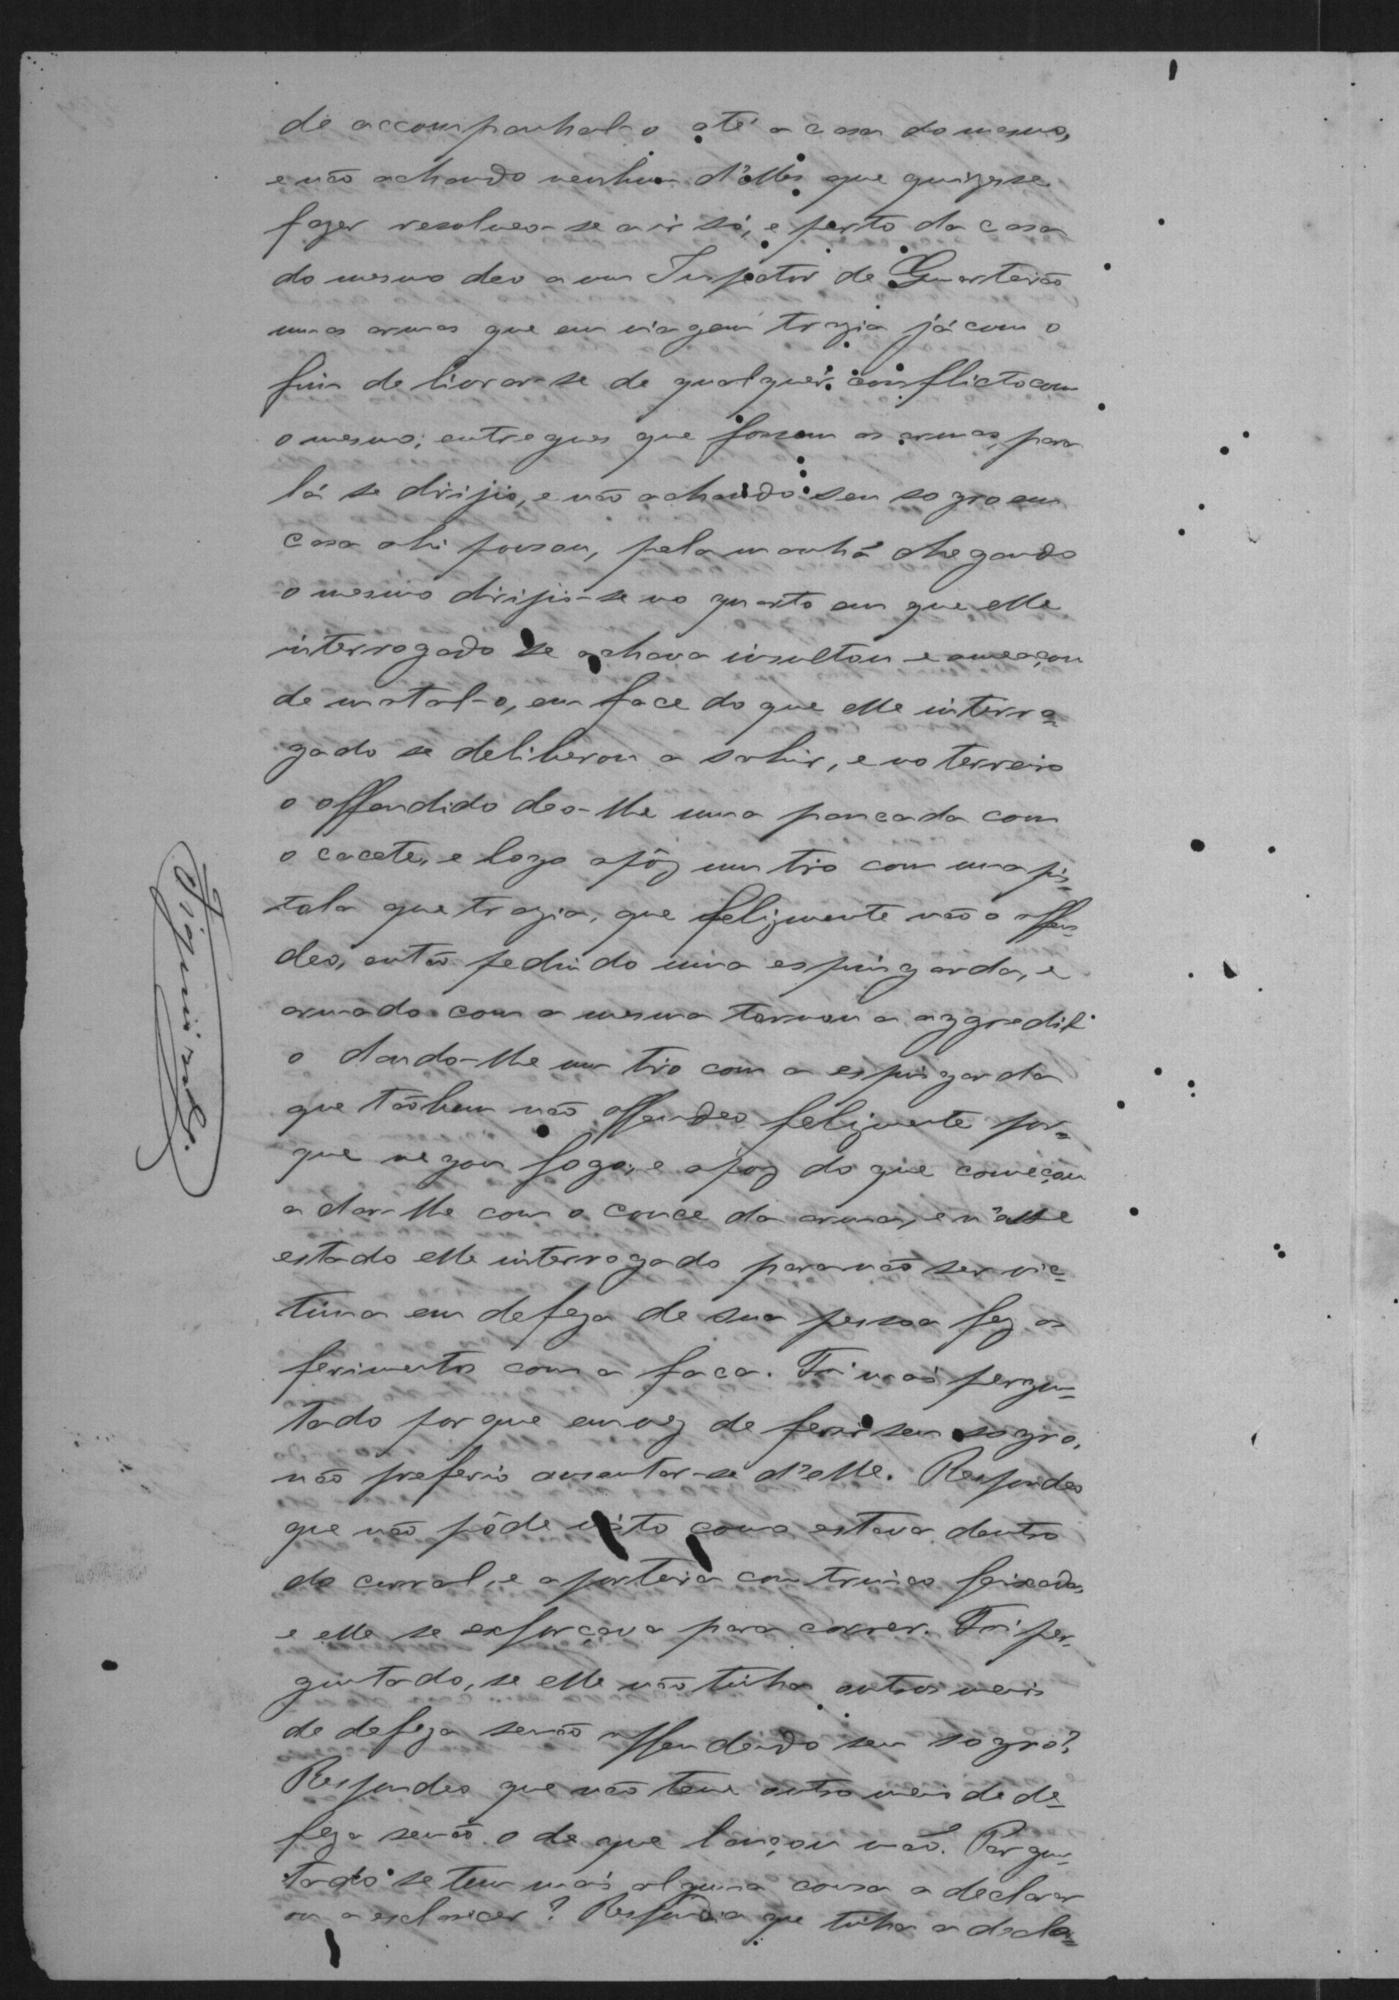 de accompanhal-o até a casa do mesmo,
e não achando nenhum d'elles que quizesse
fazer resolveo-se a ir só, e perto da casa
do mesmo deo a um Inspector de Quarteirão
umas armas que em viagem trazia já com o
fim de livrar-se de qualquer conflicto com
o mesmo; entregues que fossem as armas, para
lá se dirijio, e não achando seu sogro em
casa ahi pousou, pela manhã chegando
o mesmo dirijio-se no quarto em que elle
interrogado se achava insultou e ameaçou
de matal-o, em face do que elle interro-
gado se deliberou a sahir, e no terreiro
o offendido deo-lhe uma pancada com
o cacete, e logo apóz um tiro com uma pis-
tola que trazia, que felizmente não o offen-
deo, então pedindo uma espingarda, e
armado com a mesma tornou a aggredil-
o dando-lhe um tiro com a espingarda
que tãobem não offendeo felizmente por-
que negou fogo, e apoz do que começou
a dar-lhe com o couce da arma, e n'esse
estado elle interrogado para não ser vic-
tima em defeza de sua pessoa fez os
ferimentos com a faca. Foi mais pergun-
tado por que em vez de ferir seu sogro,
não preferio ausentar-se d'elle. Respondeo
que não pôde visto como estava dentro
do curral, e a porteira com trincos feixada,
e elle se esforçava para correr. Foi per-
guntado, se elle não tinha outros meis
de defeza senão offendendo seu sogro?
Respondeo que não teve outro meio de de-
feza senão o de que lançou mão. Pergun-
tado se tem mais alguma cousa a declarar
ou a esclarecer? Respondia que tinha a decla-